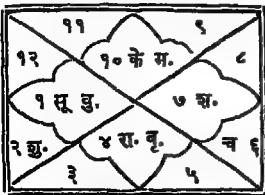 ११ ९
१२ १० के म. ८
१ सू बु. ७ श.
२ शु. ४ रा. बृ. च ६
३ ५